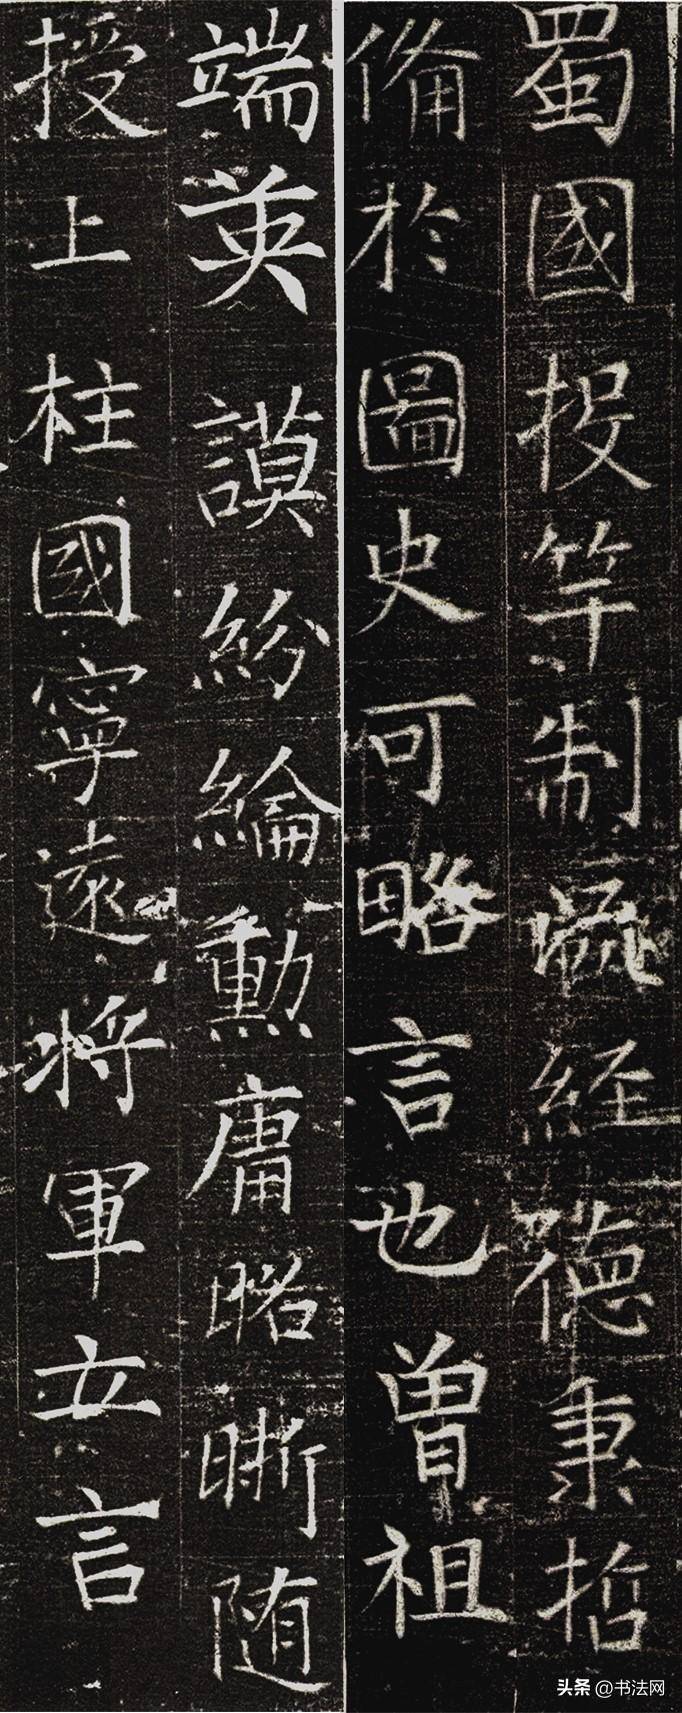 蜀國投竿制經德秉哲
俻於圖史可略言也曽祖
端英謨紛綸勳庸昭晰随
授上柱國寧遠將軍立言
头条 @书法网